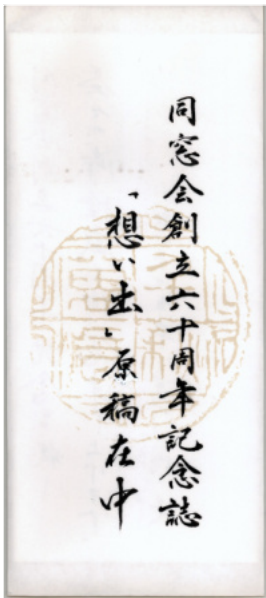 同窓会創立六十周年記念誌
「想い出」原稿在中